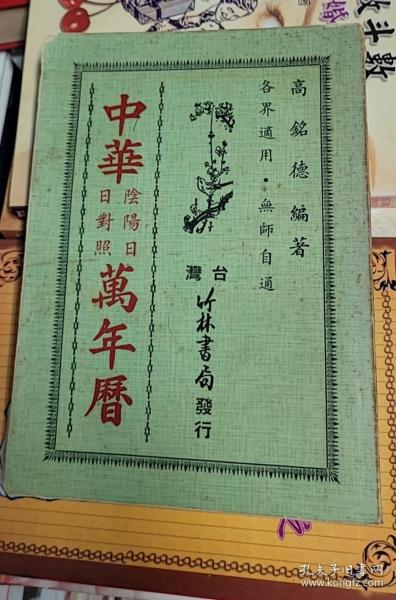 高銘德編著
各界適用·無師自通
台灣
竹林書局發行
中華
陰陽日
日對照
萬年曆
斗數
婚
孔夫子旧书网
kongfz.com